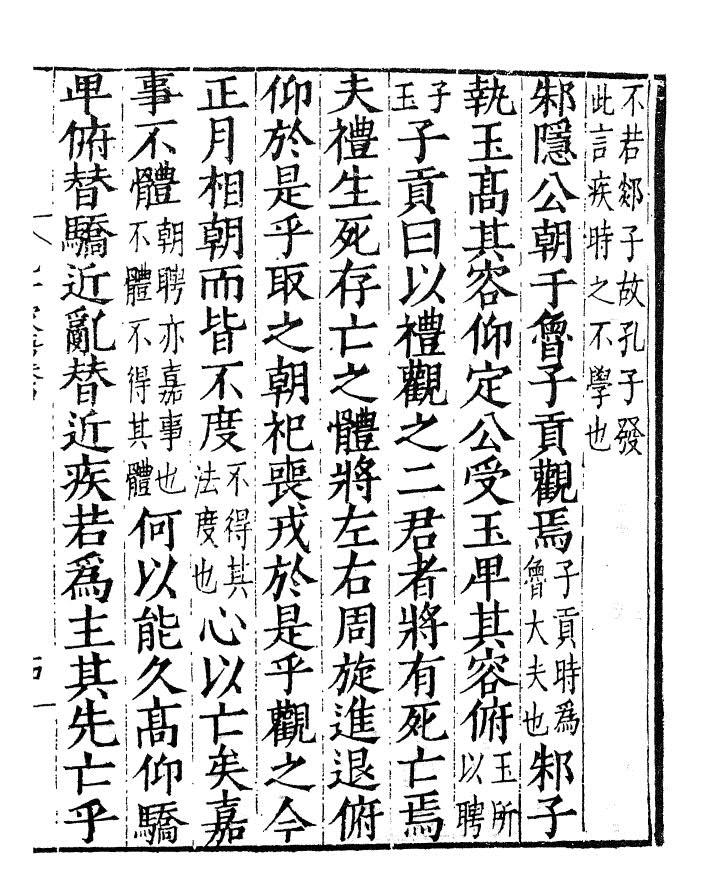 不若郯子故孔子發此言疾時之不學也
邾隱公朝于魯子貢觀焉子貢時爲魯大夫也邾子
執玉髙其容仰定公受玉卑其容俯玉所以聘
子玉子貢曰以禮觀之二君者將有死亡焉
夫禮生死存亡之體將左右周旋進退俯
仰於是乎取之朝祀喪戎於是乎觀之今
正月相朝而皆不度不得其法度也心以亡矣嘉
事不體朝聘亦嘉事也不體不得其體何以能久髙仰驕
卑俯替驕近亂替近疾若爲主其先亡乎